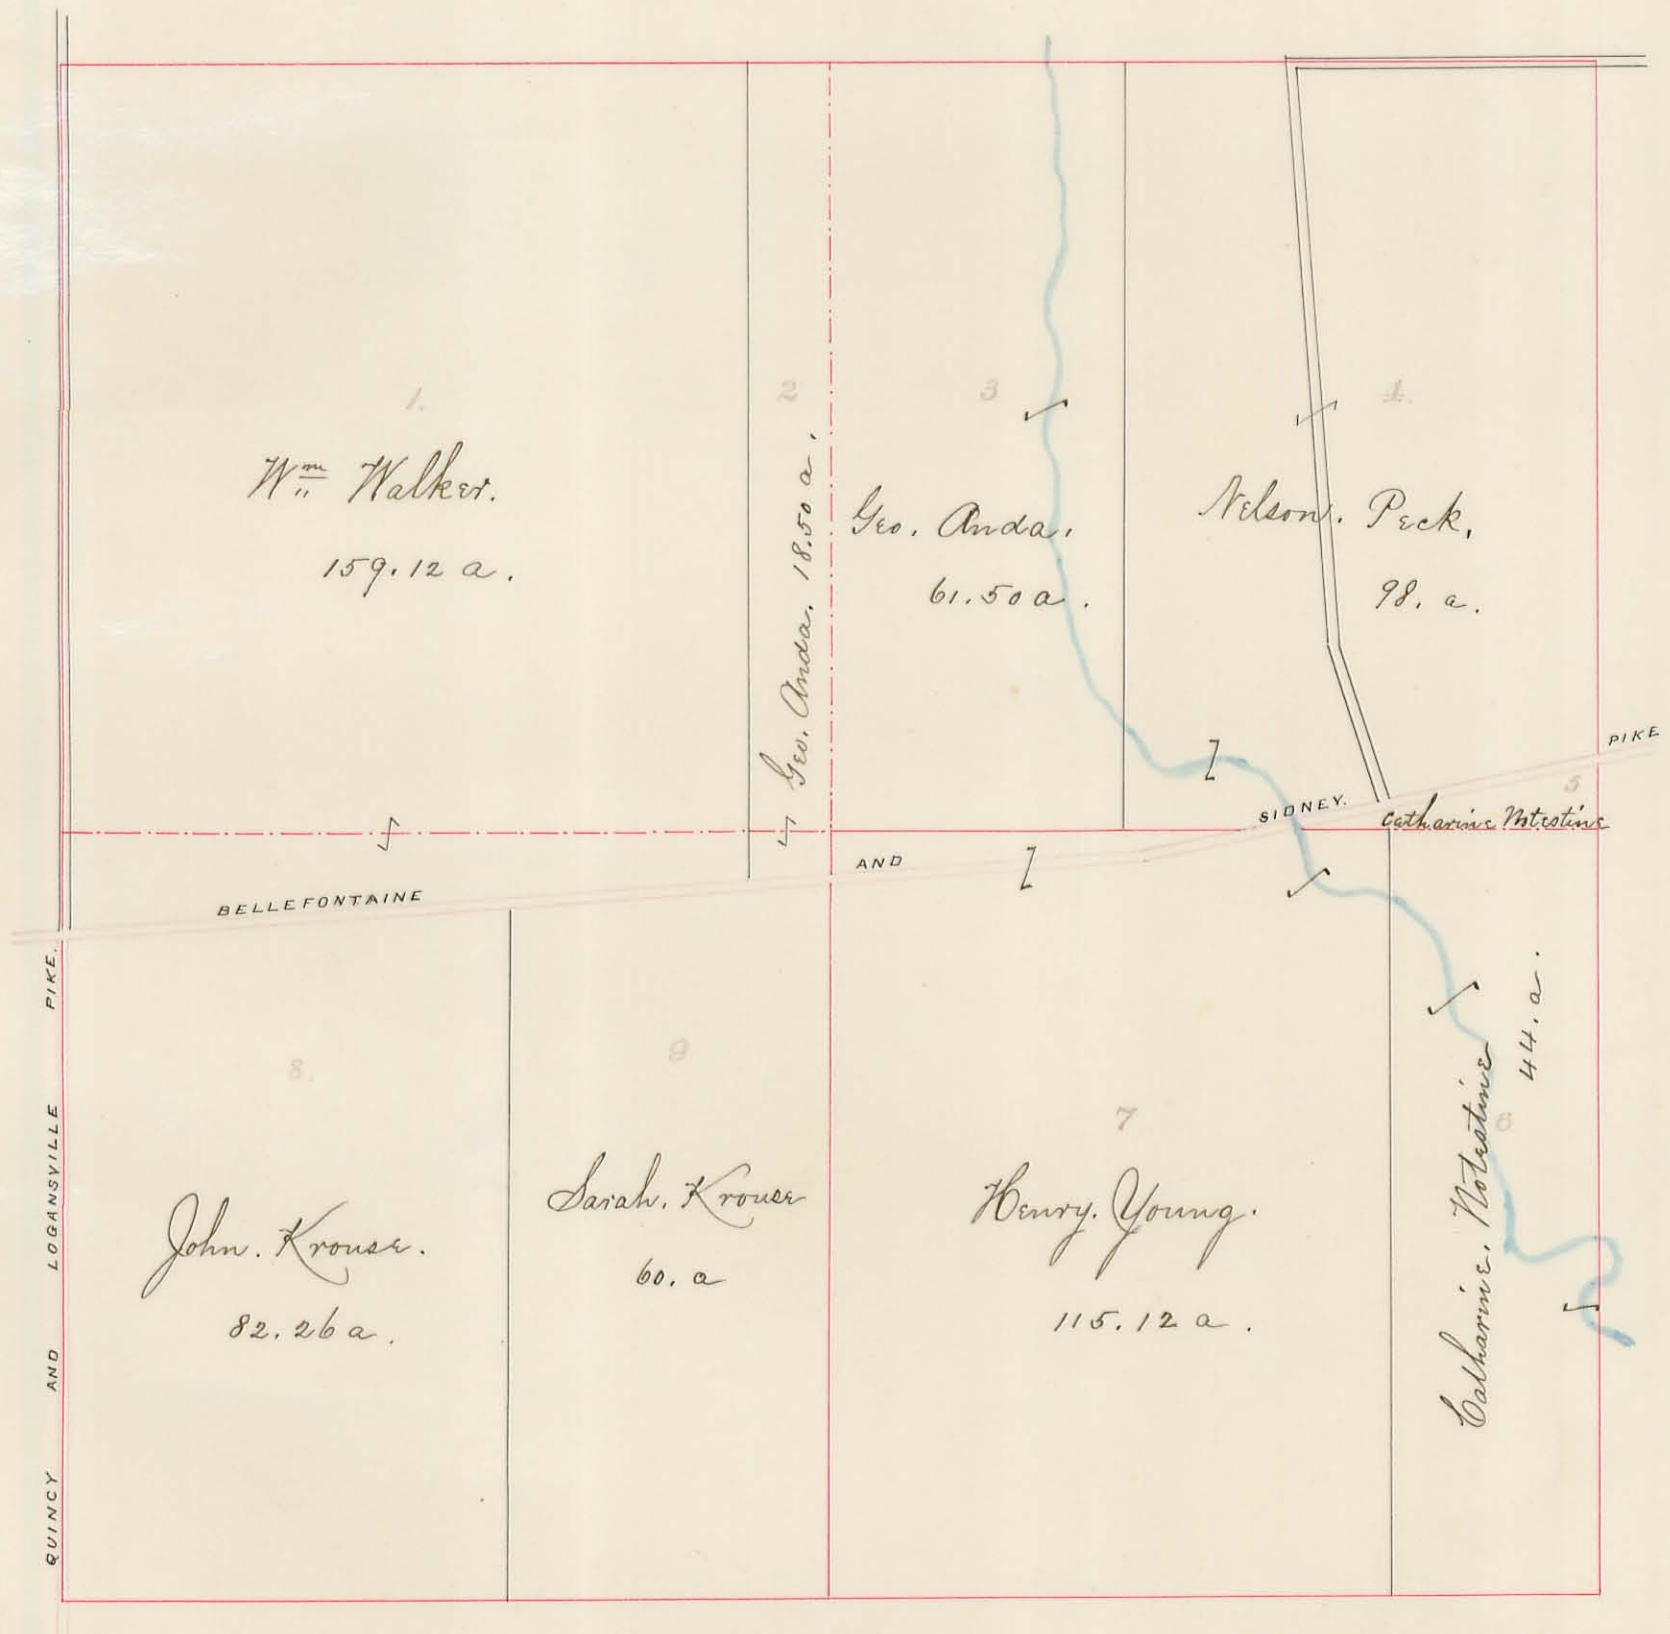 1.
Wm Walker.
159.12 a.
2
Geo. Anda. 18.50 a.
3
Geo. Anda.
61.50 a.
4.
Nelson. Peck.
98. a.
5
PIKE
SIDNEY.
Catharine Notestine
AND
BELLEFONTAINE
QUINCY AND LOGANSVILLE PIKE.
8.
John. Krouse.
82.26 a.
9
Sarah. Krouse
60. a
7
Henry. Young.
115.12 a.
6
Catharine. Notestine
44. a.